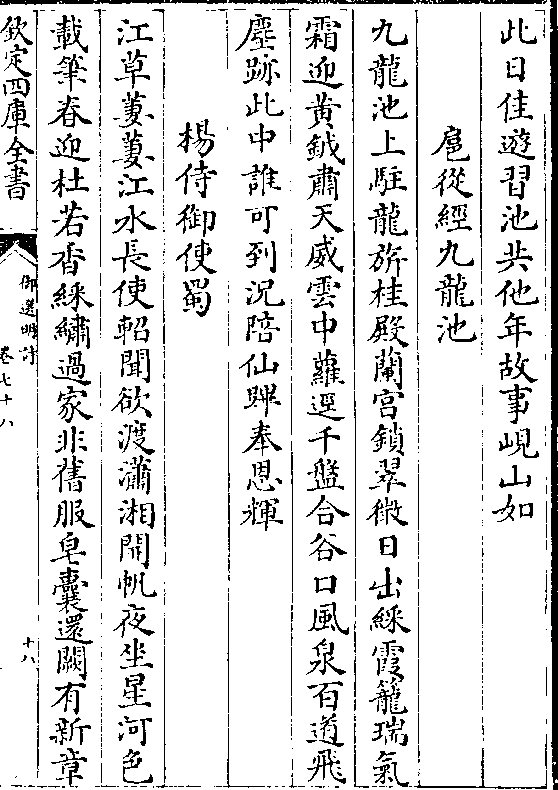 此日佳遊習池共他年故事峴山如
扈從經九龍池
九龍池上駐龍旂桂殿蘭宮鎖翠微日出綵霞籠瑞氣
霜迎黄鉞肅天威雲中蘿逕千盤合谷口風泉百道飛
塵跡此中誰可到況陪仙蹕奉恩輝
楊侍御使蜀
江草萋萋江水長使軺聞欲渡瀟湘開帆夜坐星河色
載筆春迎杜若香綵繡過家非舊服皂囊還闕有新章
欽定四庫全書
御選明詩
卷七十八
十八